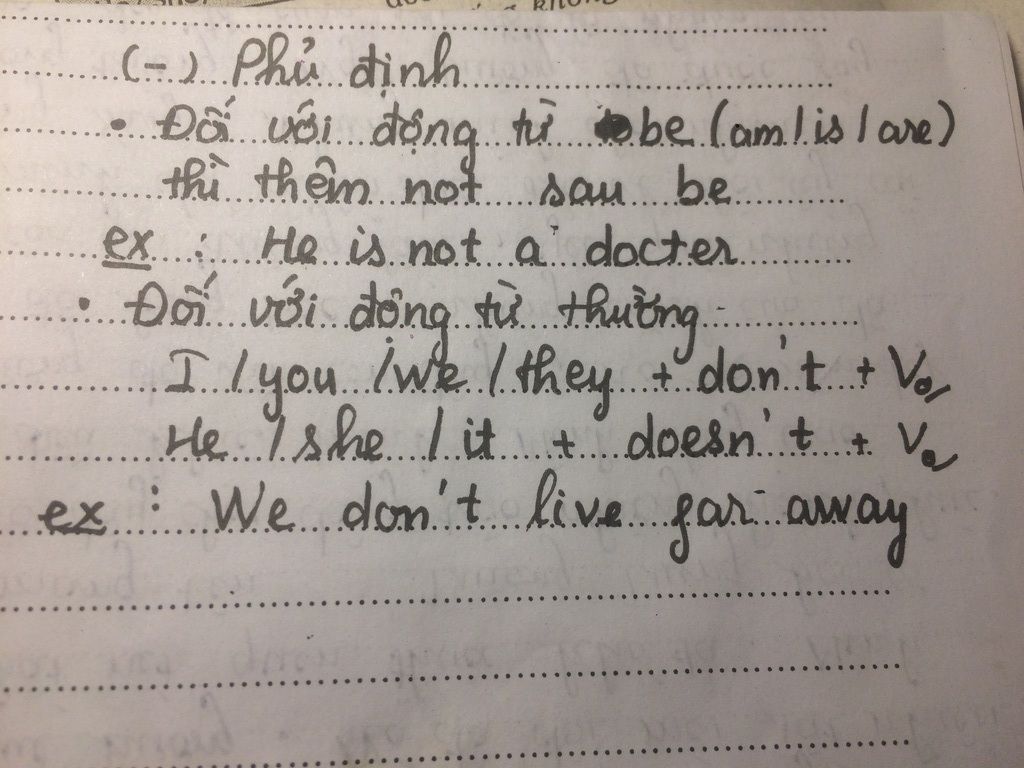 (-) Phủ định
• Đối với động từ be (am/is/are)
thì thêm not sau be
ex : He is not a docter
• Đối với động từ thường
I /you /we /they + don't + Vo,
He /she /it + doesn't + Vo,
ex : We don't live far away